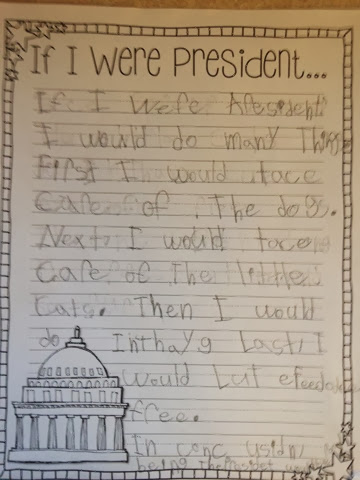 If I Were President...
If I Wefe Afesident
I would do many Things
First I would tace
Cafe of The dogs.
Next I would tace
Cafe of The little
Cats. Then I would
do Last, I
Would Lut
ffee.
In conc usidn,
being The